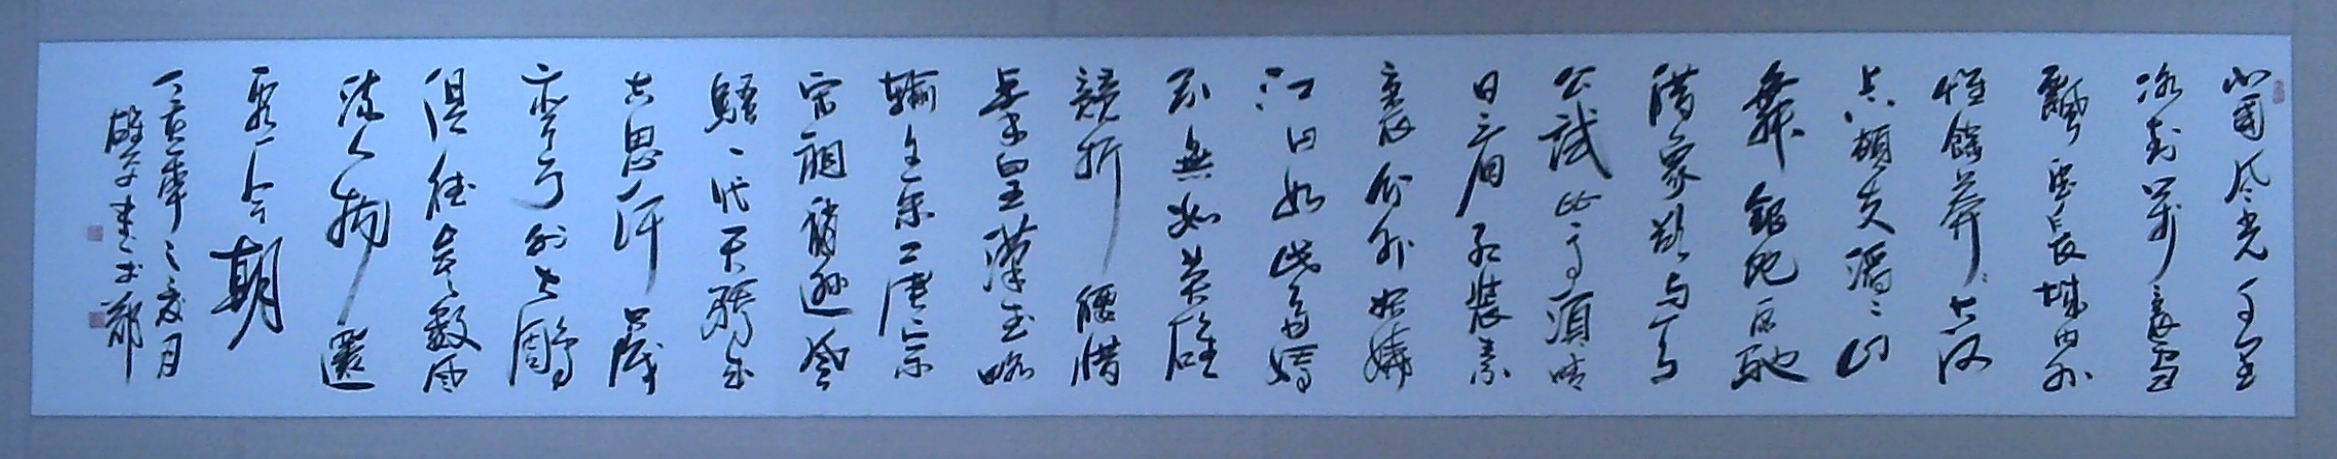 北國风光千里
冰封万里雪
飄望長城内外
惟餘莽莽大河
上下頓失滔滔山
舞銀蛇原馳
蜡象欲与天
公試比高須晴
日看红裝素
裹分外妖嬈
江山如此多嬌
引無數英雄
競折腰惜
秦皇漢武略
輸文采唐宗
宋祖稍遜風
騷一代天驕成
吉思汗只識
彎弓射大鵰
俱往矣數風
流人物還
看今朝
丁亥年之夏月
書于鄭